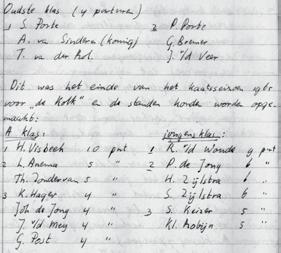 Oudste klas (4 parturen)
1 S. Porte 2 P. Porte
A. van Sinderen (koning) G. Bouma
T. van der Bol. J. v/d Veer
Dit was het einde van het kaatsseizoen 1981
voor "de Kolk" en de standen konden worden opge-
maakt:
A klas: jongensklas:
1 H. Visbeek 10 pnt 1 R. v/d Woude 9 pnt
2 L. Anema 5 " 2 P. de Jong 6 "
Th. Zondervan 5 " H. Zijlstra 6 "
3 K. Hager 4 " S. Zijlstra 6 "
Joh de Jong 4 " 3 S. Keizer 5 "
J. v/d Meij 4 " Kl. Nobijn 5 "
G. Post 4 "